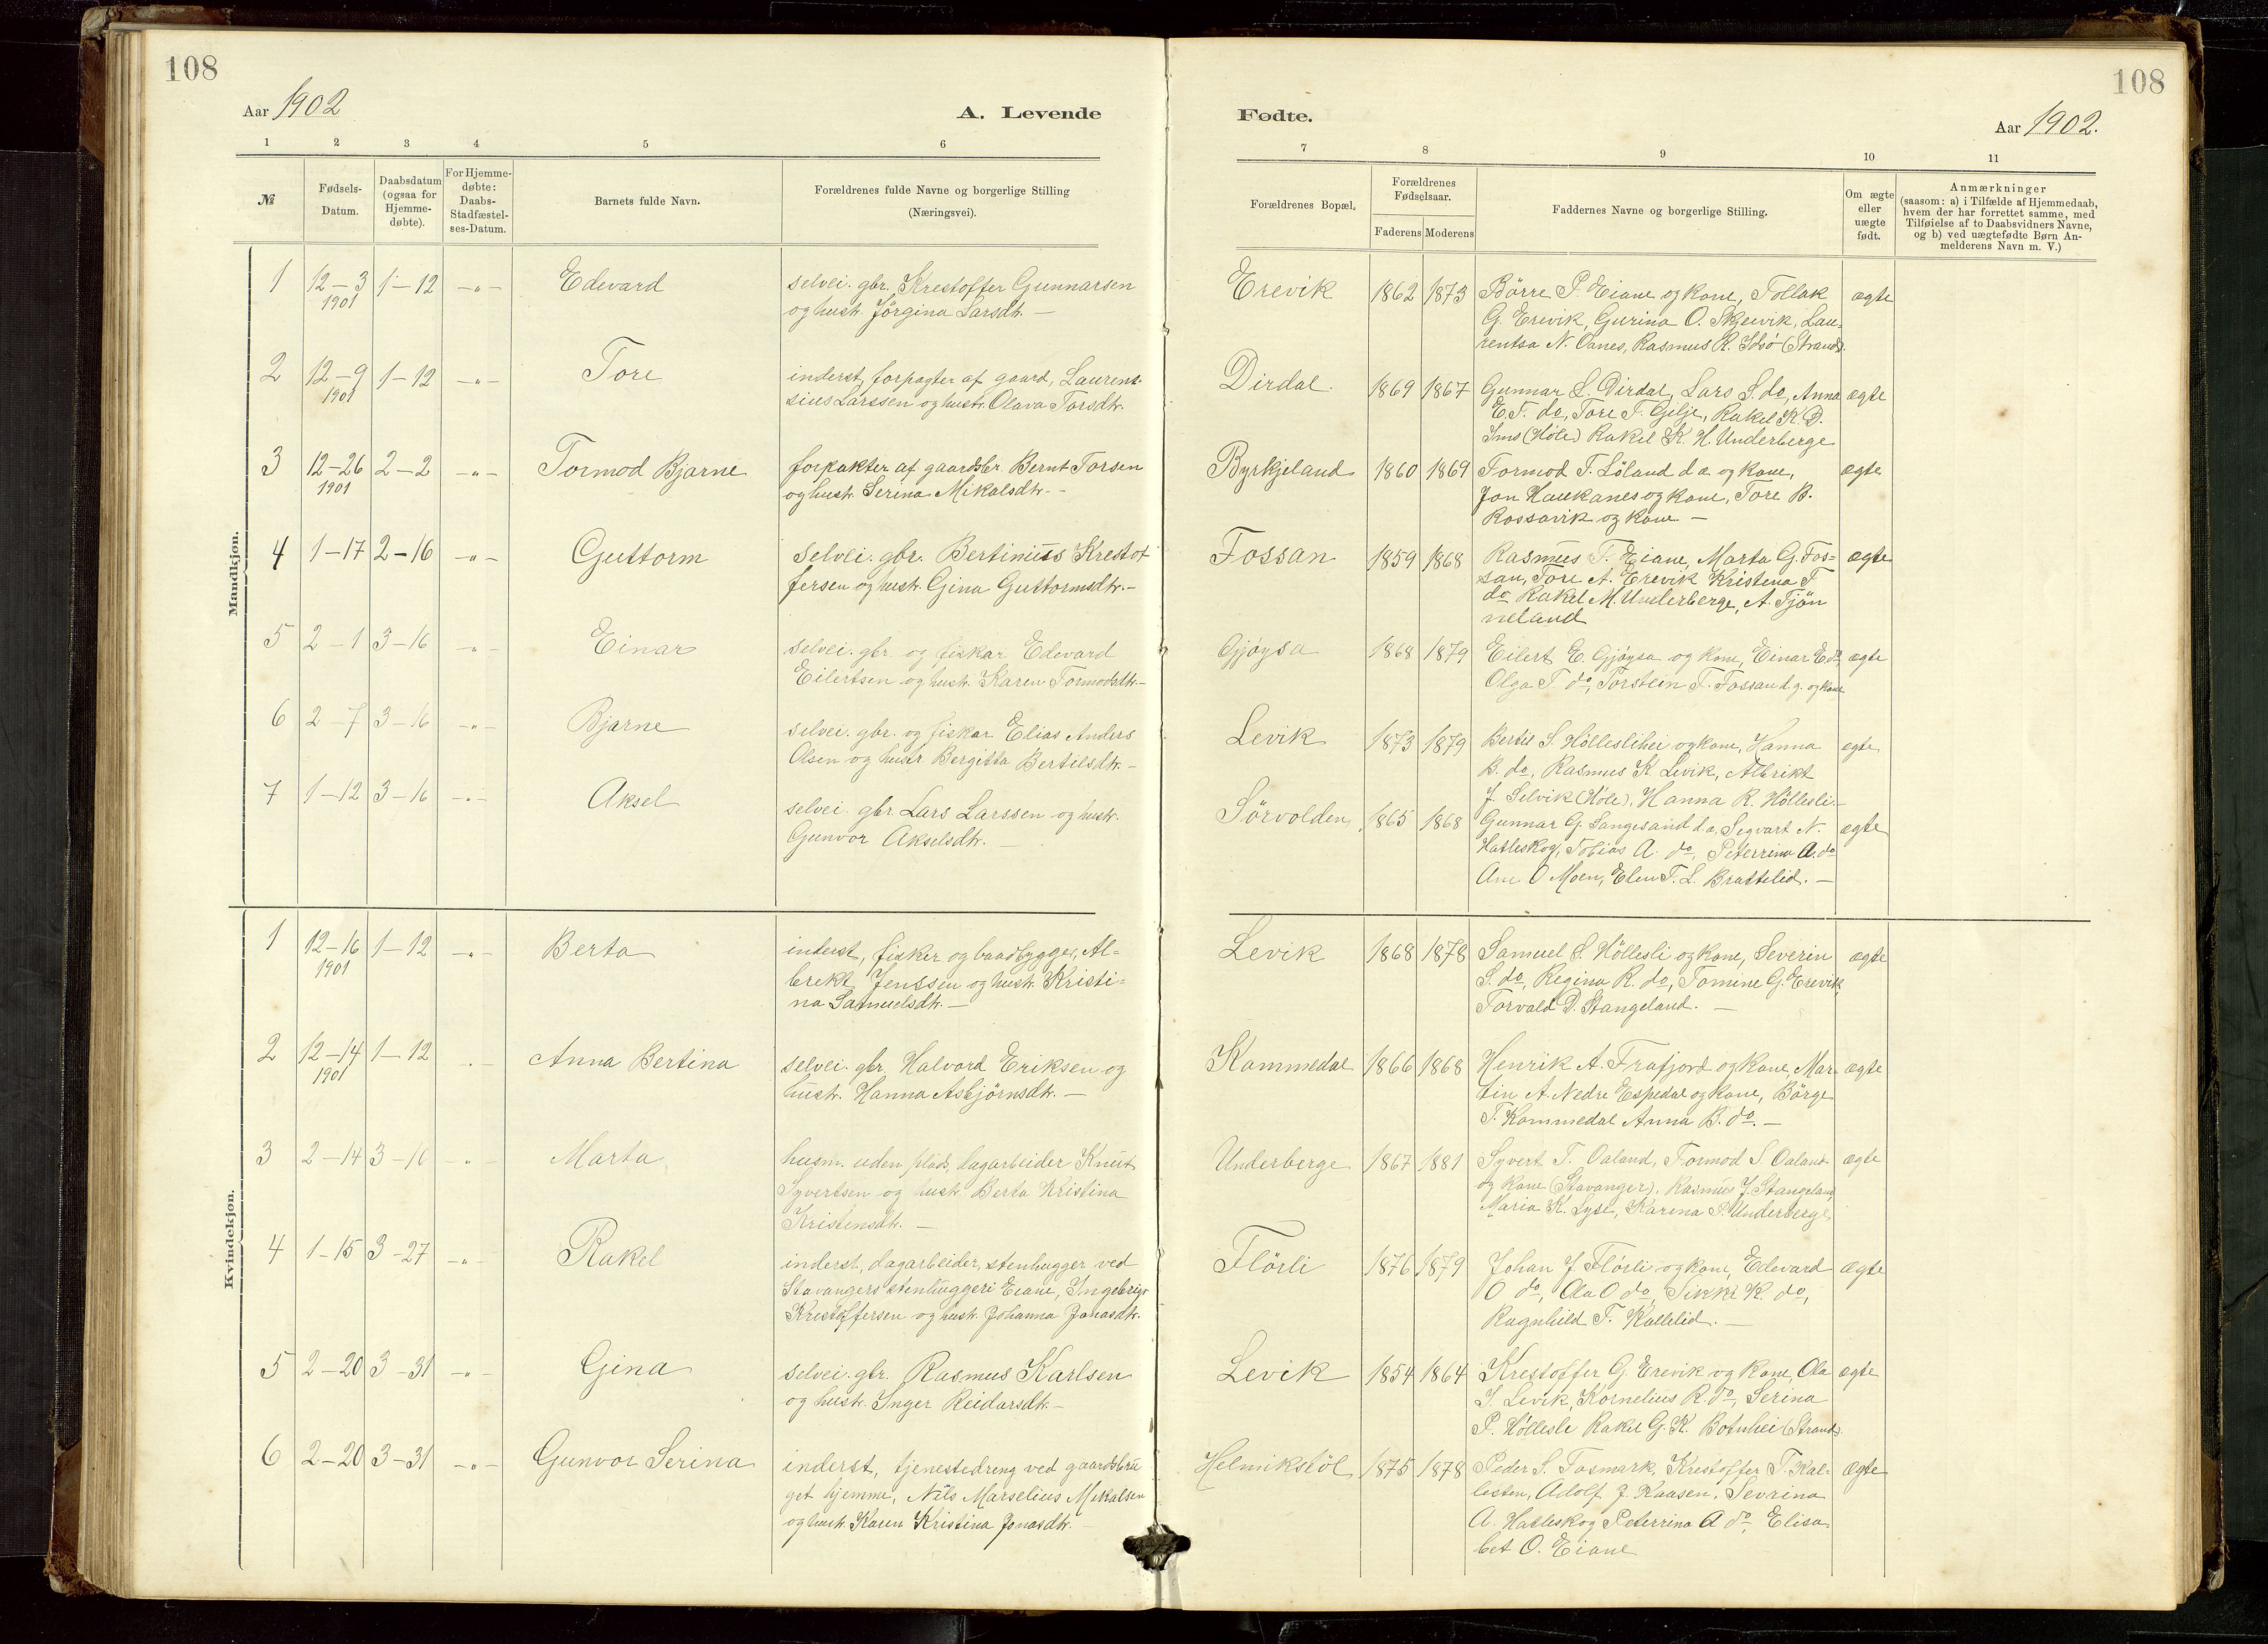 108
108
Aar 1902
A. Levende
Fødte.
Aar 1902.
1 2 3 4 5 6
7 8 9 10 11
№
Fødsels-
Datum.
Daabsdatum
(ogsaa for
Hjemme-
døbte).
For Hjemme-
døbte:
Daabs-
Stadfæstel-
ses-Datum.
Barnets fulde Navn.
Forældrenes fulde Navne og borgerlige Stilling
(Næringsvei).
Forældrenes Bopæl.
Forældrenes
Fødselsaar.
Faderens Moderens
Faddernes Navne og borgerlige Stilling.
Om ægte
eller
uægte
født.
Anmærkninger
(saasom: a) i Tilfælde af Hjemmedaab,
hvem der har forrettet samme, med
Tilføielse af to Daabsvidners Navne,
og b) ved uægtefødte Børn An-
melderens Navn m. V.)
Mandkjøn.
1 12-3 1-12 -„- Edevard
1901
selvei. gbr. Krestoffer Gunnarsen
og hustr. Jørgina Larsdtr. -
Erevik 1862 1873
Börre P. Eiane og kone, Tollak
G. Erevik, Gurina O. Skjervik, Lau-
rentsa N. Oanes, Rasmus R. Idsö (Strand).
ægte
2 12-9 1-12 -„- Tore
1901
inderst, forpagter af gaard, Laurent-
sius Larssen og hustr. Olava Torsdtr.
Dirdal. 1869 1867
Gunnar L. Dirdal, Lars S. do, Anna
E.T. do, Tore T. Gilje, Rakel K. D.
Ims (Høle) Rakel K. H. Underberge
ægte
3 12-26 2-2 -„- Tormod Bjarne
1901
forpakter af gaardsbr. Bernt Torsen
og hustr. Serina Mikalsdtr. -
Byrkjeland 1860 1869
Tormod T. Löland d.æ. og kone,
Jon Haukanes og kone, Tore B.
Rossavik og kone -
ægte
4 1-17 2-16 -„- Guttorm
Selvei. gbr. Bertinius Krestof
fersen og hustr. Gina Guttormsdtr. -
Fossan 1859 1868
Rasmus T. Eiane, Marta G. Fos-
san, Tore A. Erevik Kristina T
do Rakel M. Underberge, A. Tjön
neland
ægte
5 2-1 3-16 -„- Einar
selvei. gbr. og fiskar Edevard
Eilertsen og hustr. Karen Tormodsdtr. -
Gjöysa 1868 1879
Eilert E. Gjöysa og kone, Einar E do,
Olga T. do, Torstein T. Fossan d.y. og kone
ægte
6 2-7 3-16 -„- Bjarne
selvei. gbr. og fiskar Elias Anders
Olsen og hustr Bergitta Bertilsdtr. -
Levik 1873 1879
Bertil S. Hølleslihei og kone, Hanna
B. do, Rasmus K Levik, Albrikt
J. Selvik (Høle), Hanna R. Höllesli. -
ægte
7 1-12 3-16 -„- Aksel
selvei. gbr Lars Larssen og hustr.
Gunvor Akselsdtr. -
Sörvolden 1865 1868
Gunnar G. Sangesand d.æ. Segvart N.
Hatleskog, Tobias A. do, Peterrina A. do
Ane O Moen, Elen T. L. Brattelid. -
ægte
Kvindekjøn.
1 12-16 1-12 -„- Berta
1901
inderst, fisker og baadbygger, Al-
brekt Jenssen og hustr. Kristi-
na Samuelsdtr. -
Levik 1868 1878
Samuel S. Höllesli og kone, Severin
S. do, Regina R. do, Tomine G. Erevik,
Torvald D. Stangeland. -
ægte
2 12-14 1-12 Anna Bertina
1901
selvei. gbr. Halvord Eriksen og
hustr. Hanna Asbjörnsdtr. -
Kommedal 1866 1868
Henrik A. Frafjord og kone, Mar-
tin A. Nedre Espedal og kone, Börge
T. Kommedal Anna B. do. -
ægte
3 2-14 3-16 -„- Marta
husm. uden plads, dagarbeider Knut
Syvertsen og hustr. Berta Kristina
Kristensdtr. -
Underberge 1867 1881
Syvert T. Oaland, Tormod S Oaland
og kone (Stavanger). Rasmus J. Stangeland,
Maria K. Lyse, Karina P. Underberge
ægte
4 1-15 3-27 -„- Rakel
inderst, dagarbeider, stenhugger ved
Stavangers stenhuggeri Eiane, Ingebrigt
Krestoffersen og hustr. Johanna Jonasdtr.
Flörli 1876 1879
Johan J Flörli og kone, Edevard
O do, Ola O do, Sikke K. do,
Ragnhild T. Kallelid. -
ægte
5 2-20 3-31 -„- Gina
selvei. gbr. Rasmus Karlsen
og hustr. Inger Reidarsdtr. -
Levik 1854 1864
Krestoffer G. Erevik og kone, Ola
J. Levik, Kornelius R. do, Serina
P. Höllesli Rakel G. K. Botnhei (Strand).
ægte
6 2-20 3-31 -„- Gunvor Serina
inderst, tjenestedreng ved gaardsbru
get hjemme, Nils Marselius Mikalsen
og hustr. Karen Kristina Jonasdtr. -
Helmikstöl 1875 1878
Peder S. Fosmark, Krestoffer T. Kal-
lesten, Adolf J. Kaasen, Sevrina
A. Hatleskog Peterrina A do, Elisa-
bet O. Eiane
ægte